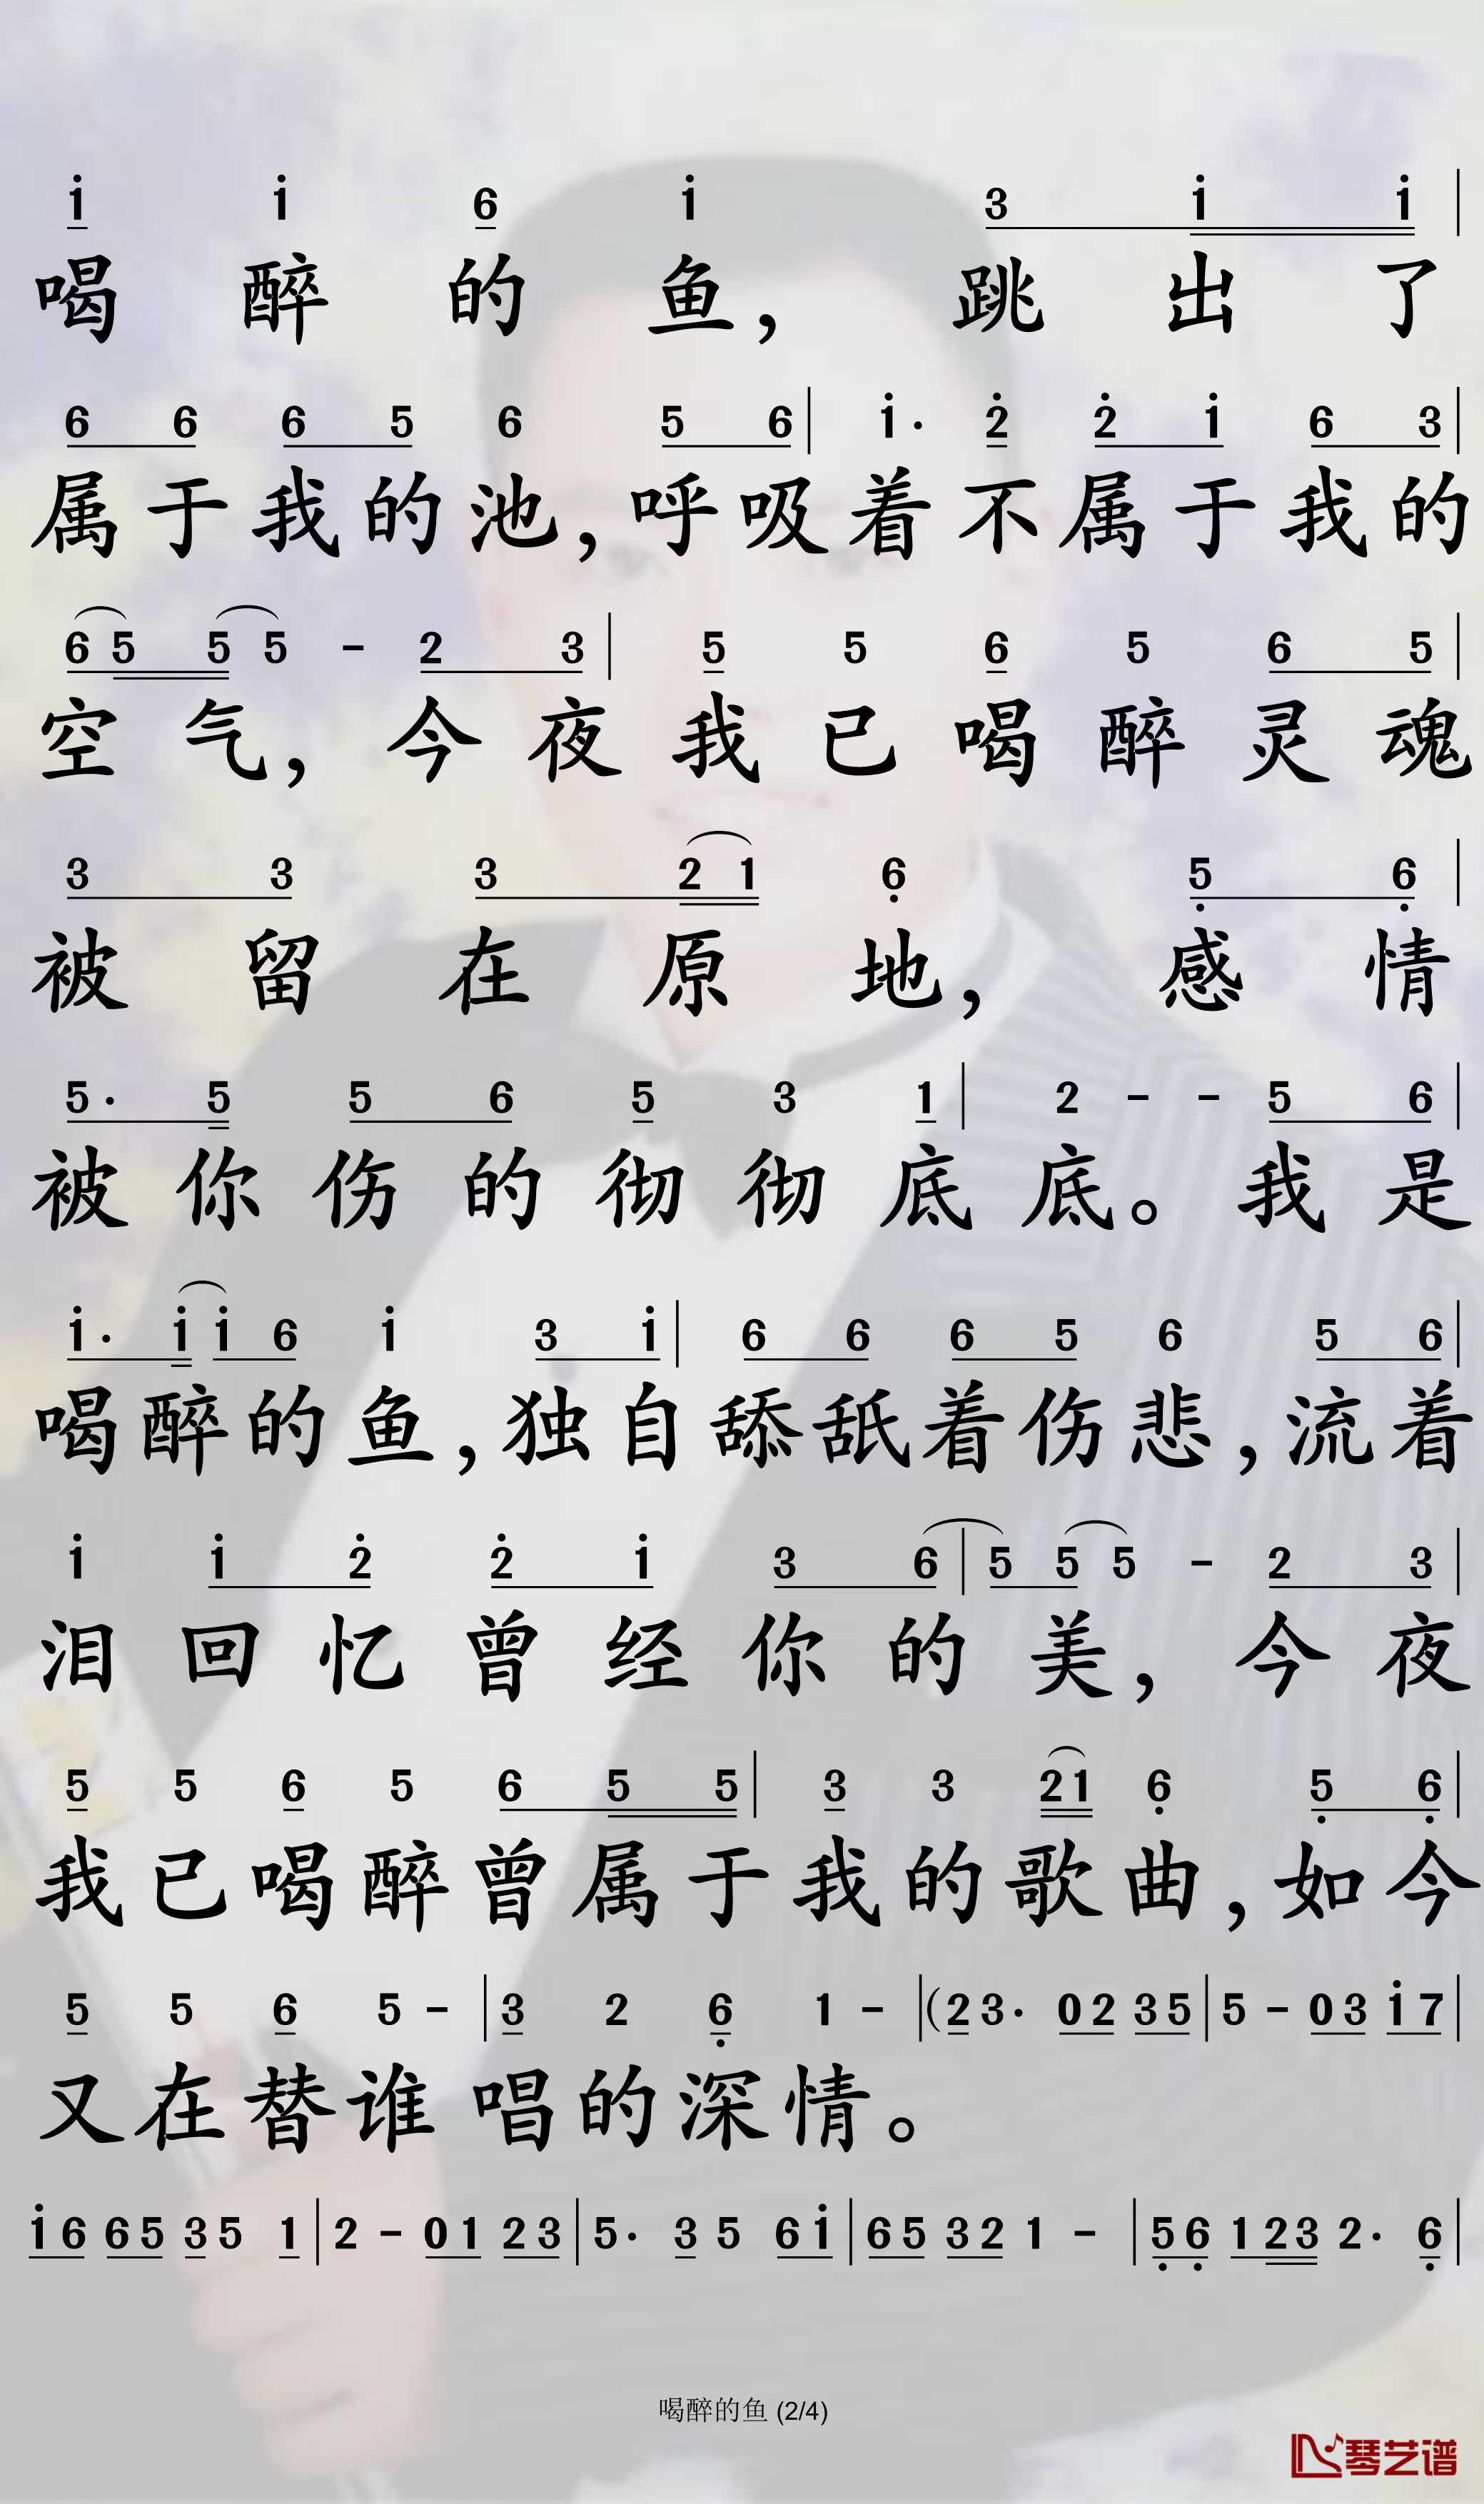 1 1 6 1 3 1 1 |
喝醉的鱼，跳出了
6 6 6 5 6 5 6 | 1· 2 2 1 6 3 |
属于我的池，呼吸着不属于我的
6 5 5 5 - 2 3 | 5 5 6 5 6 5 |
空气，今夜我已喝醉灵魂
3 3 3 2 1 6 5 6 |
被留在原地，感情
5· 5 5 6 5 3 1 | 2 - - 5 6 |
被你伤的彻彻底底。我是
1· 1 1 6 1 3 1 | 6 6 6 5 6 5 6 |
喝醉的鱼，独自舔舐着伤悲，流着
1 1 2 2 1 3 6 | 5 5 5 - 2 3 |
泪回忆曾经你的美，今夜
5 5 6 5 6 5 5 | 3 3 2 1 6 5 6 |
我已喝醉曾属于我的歌曲，如今
5 5 6 5 - | 3 2 6 1 - | (2 3· 0 2 3 5 | 5 - 0 3 1 7 |
又在替谁唱的深情。
1 6 6 5 3 5 1 | 2 - 0 1 2 3 | 5· 3 5 6 1 | 6 5 3 2 1 - | 5 6 1 2 3 2· 6 |
喝醉的鱼 (2/4)
琴艺谱